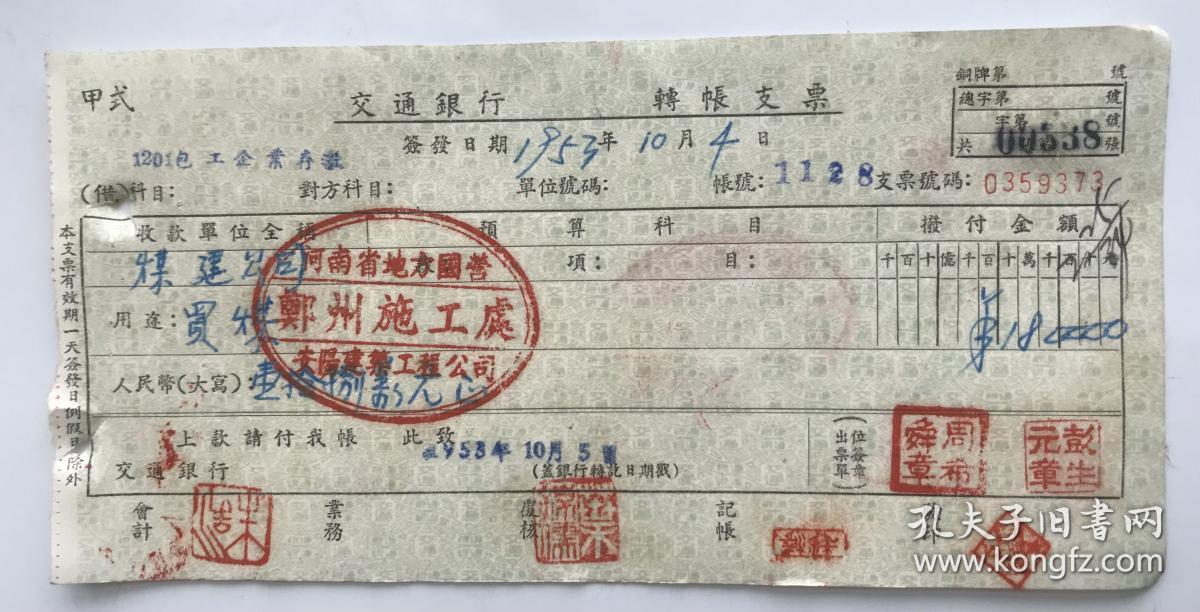 甲式
交通銀行 轉帳支票
銅牌第 號
總字第 號
字第 號
共 張
00538
簽發日期 1953年 10月 4日
1201包工企業存款
(借)科目: 對方科目: 單位號碼: 帳號: 1128 支票號碼: 0359373
收款單位全稱 預算科目 撥付金額
煤建公司 款: 項: 目: 千百十億千百十萬千百十元
用途: 買煤 180000
人民幣(大寫): 壹拾捌萬元正
河南省地方國營
鄭州施工處
安陽建築工程公司
上款請付我帳 此致
交通銀行 1953年 10月 5日
(蓋銀行轉訖日期戳)
(出票單位簽章)
周布舜章
彭生元章
會計 業務 復核 記帳
本支票有效期一天簽發日例假日除外
孔夫子旧书网
www.kongfz.com